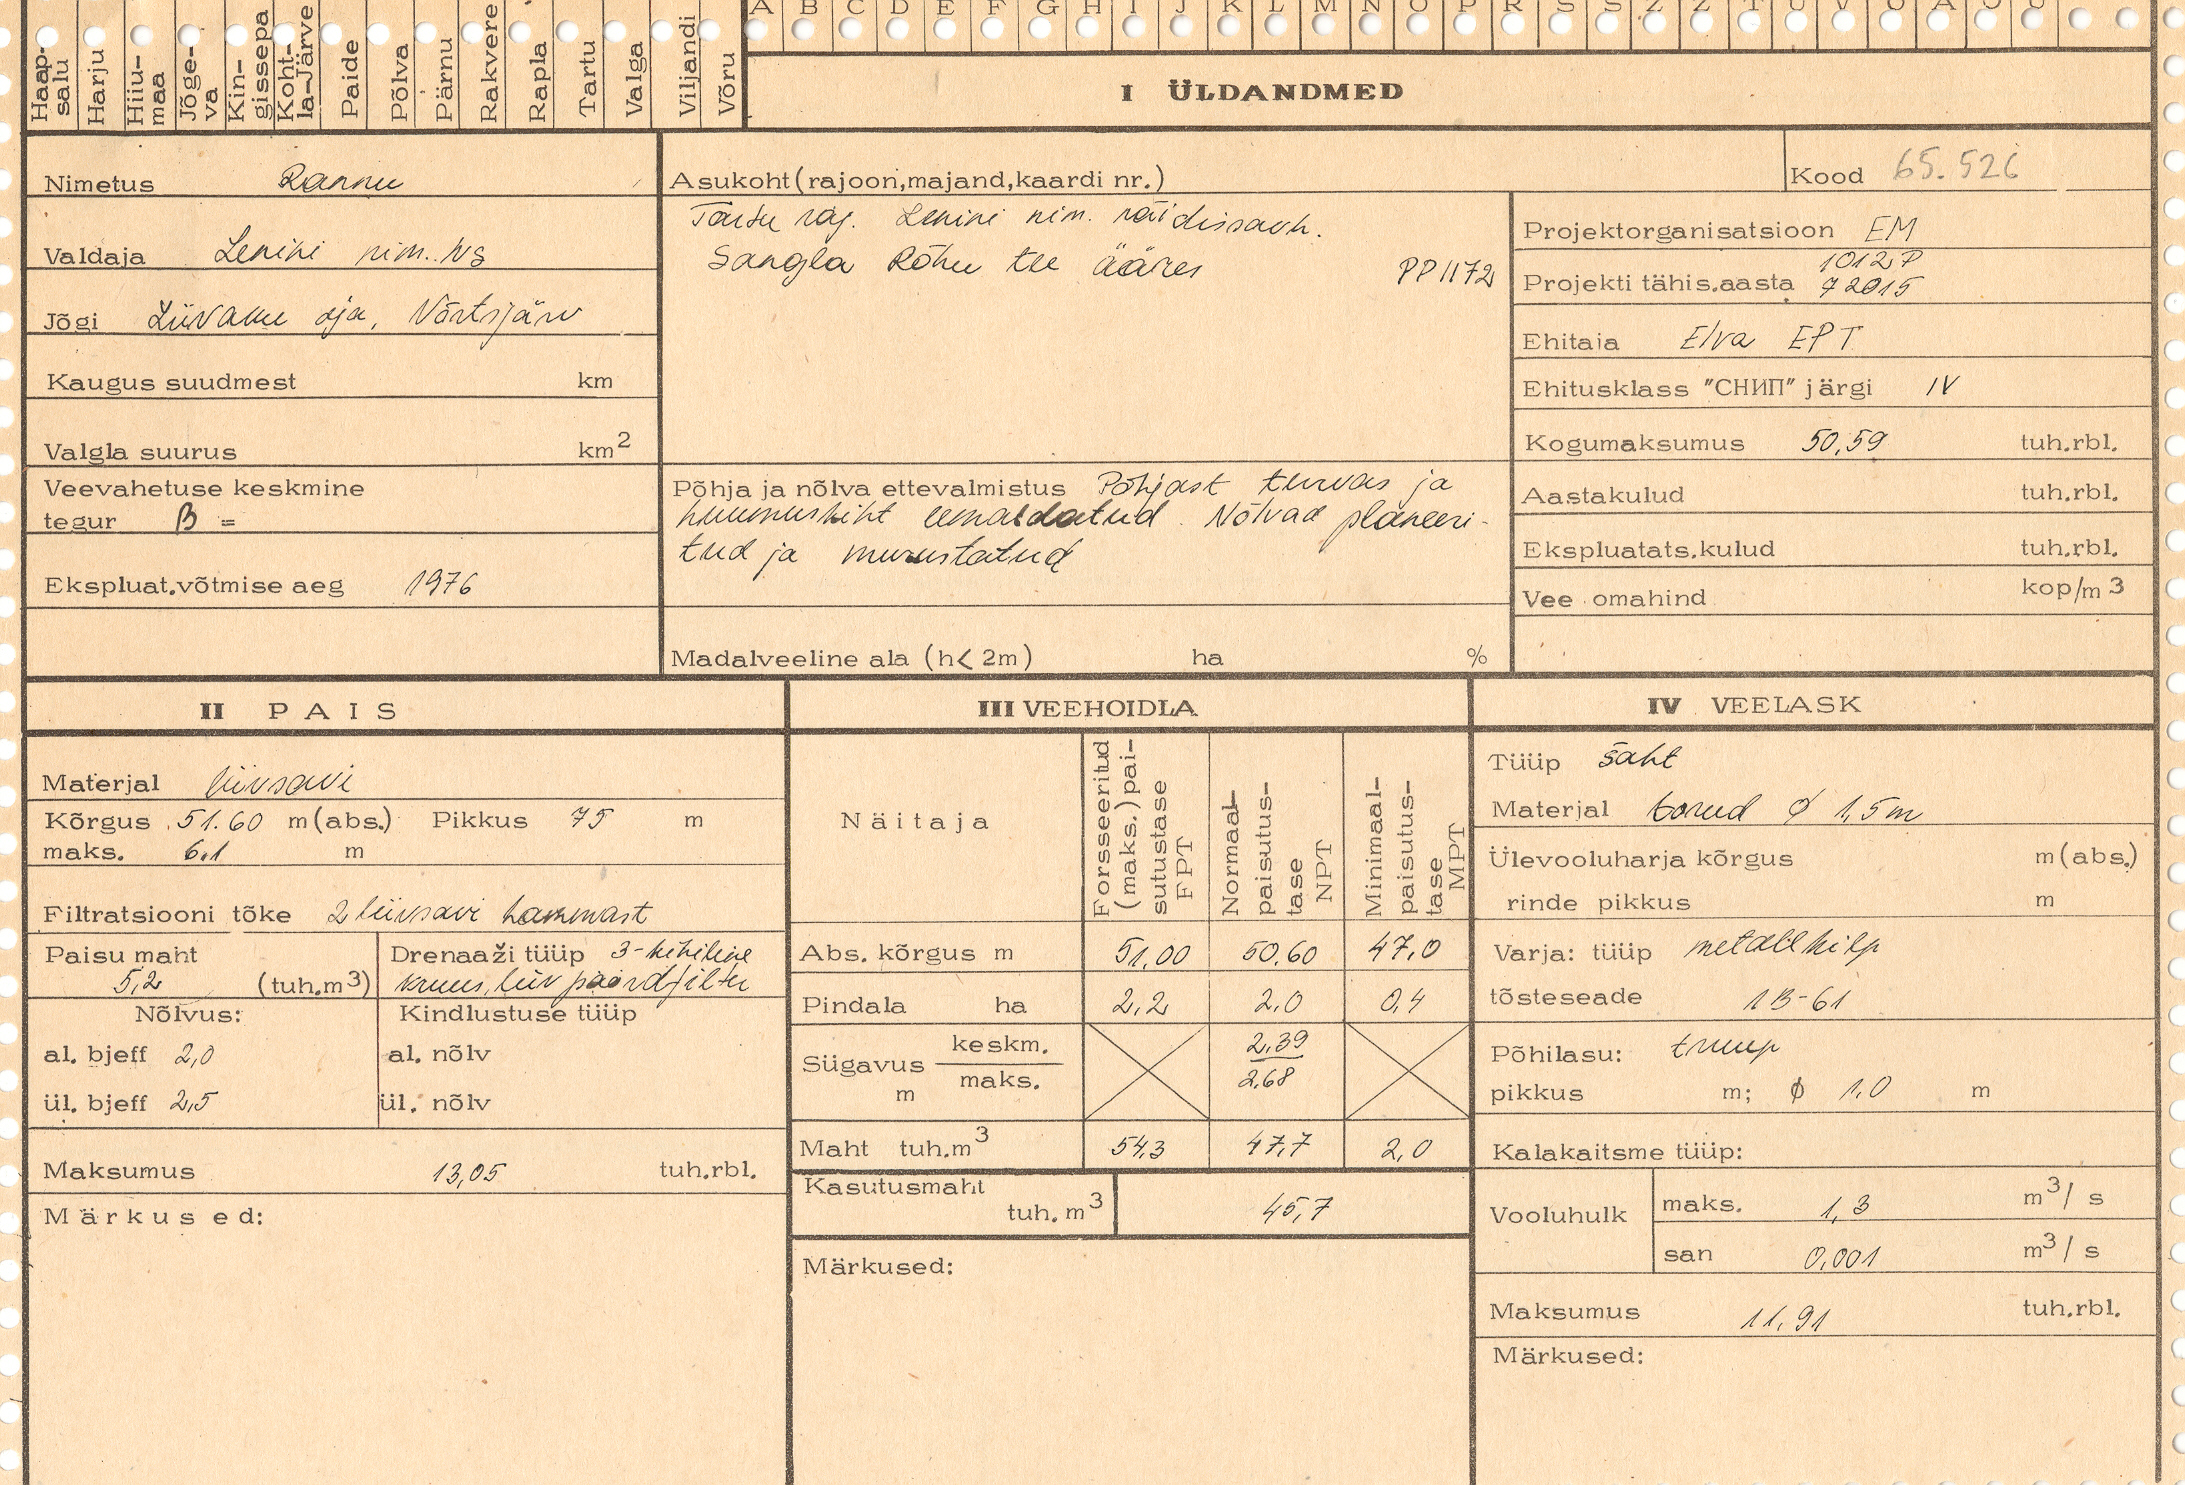 A B C D E F G H I J K L M N O P R S Š Z Ž T U V Õ Ä Ö Ü
Haap-salu Harju Hiiu-maa Jõge-va Kin-gissepa Koht-la-Järve Paide Põlva Pärnu Rakvere Rapla Tartu Valga Viljandi Võru
I ÜLDANDMED
Nimetus Rannu
Asukoht (rajoon, majand, kaardi nr.)
Kood 65.526
Tartu raj. Lenini nim. näidissovh.
Sangla Rõhu tee ääres PP 1172
Valdaja Lenini nim. NS
Jõgi Liivaku oja, Võrtsjärv
Kaugus suudmest km
Valgla suurus km2
Veevahetuse keskmine
tegur β =
Ekspluat. võtmise aeg 1976
Põhja ja nõlva ettevalmistus Põhjast turvas ja
huumuskiht eemaldatud. Nõlvad planeeri-
tud ja murustatud
Madalveeline ala (h< 2m) ha %
Projektorganisatsioon EM
1012 P
Projekti tähis. aasta 72015
Ehitaja Elva EPT
Ehitusklass "СНИП" järgi IV
Kogumaksumus 50,59 tuh.rbl.
Aastakulud tuh.rbl.
Ekspluatats.kulud tuh.rbl.
Vee omahind kop/m3
II PAIS
Materjal liivsavi
Kõrgus 51.60 m (abs.) Pikkus 75 m
maks. 6.1 m
Filtratsiooni tõke liivsavi hammast
Paisu maht
5,2 (tuh.m3)
Drenaaži tüüp 3-kihiline
kruus, liiv pöördfilter
Nõlvus:
al. bjeff 2,0
ül. bjeff 2,5
Kindlustuse tüüp
al. nõlv
ül. nõlv
Maksumus 13,05 tuh.rbl.
Märkused:
III VEEHOIDLA
Näitaja
Forsseeritud (maks.) pai-sutustase FPT
Normaal-paisutus-tase NPT
Minimaal-paisutus-tase MPT
Abs. kõrgus m 51,00 50,60 47,0
Pindala ha 2,2 2,0 0,4
Sügavus keskm. 2,39
m maks. 2,68
Maht tuh.m3 54,3 47,7 2,0
Kasutusmaht
tuh. m3 45,7
Märkused:
IV VEELASK
Tüüp šaht
Materjal torud ϕ 1,5 m
Ülevooluharja kõrgus m (abs.)
rinde pikkus m
Varja: tüüp metallkilp
tõsteseade 1B-61
Põhilasu: truup
pikkus m; ϕ 1,0 m
Kalakaitsme tüüp:
Vooluhulk maks. 1,3 m3/s
san 0,001 m3/s
Maksumus 11,91 tuh.rbl.
Märkused: